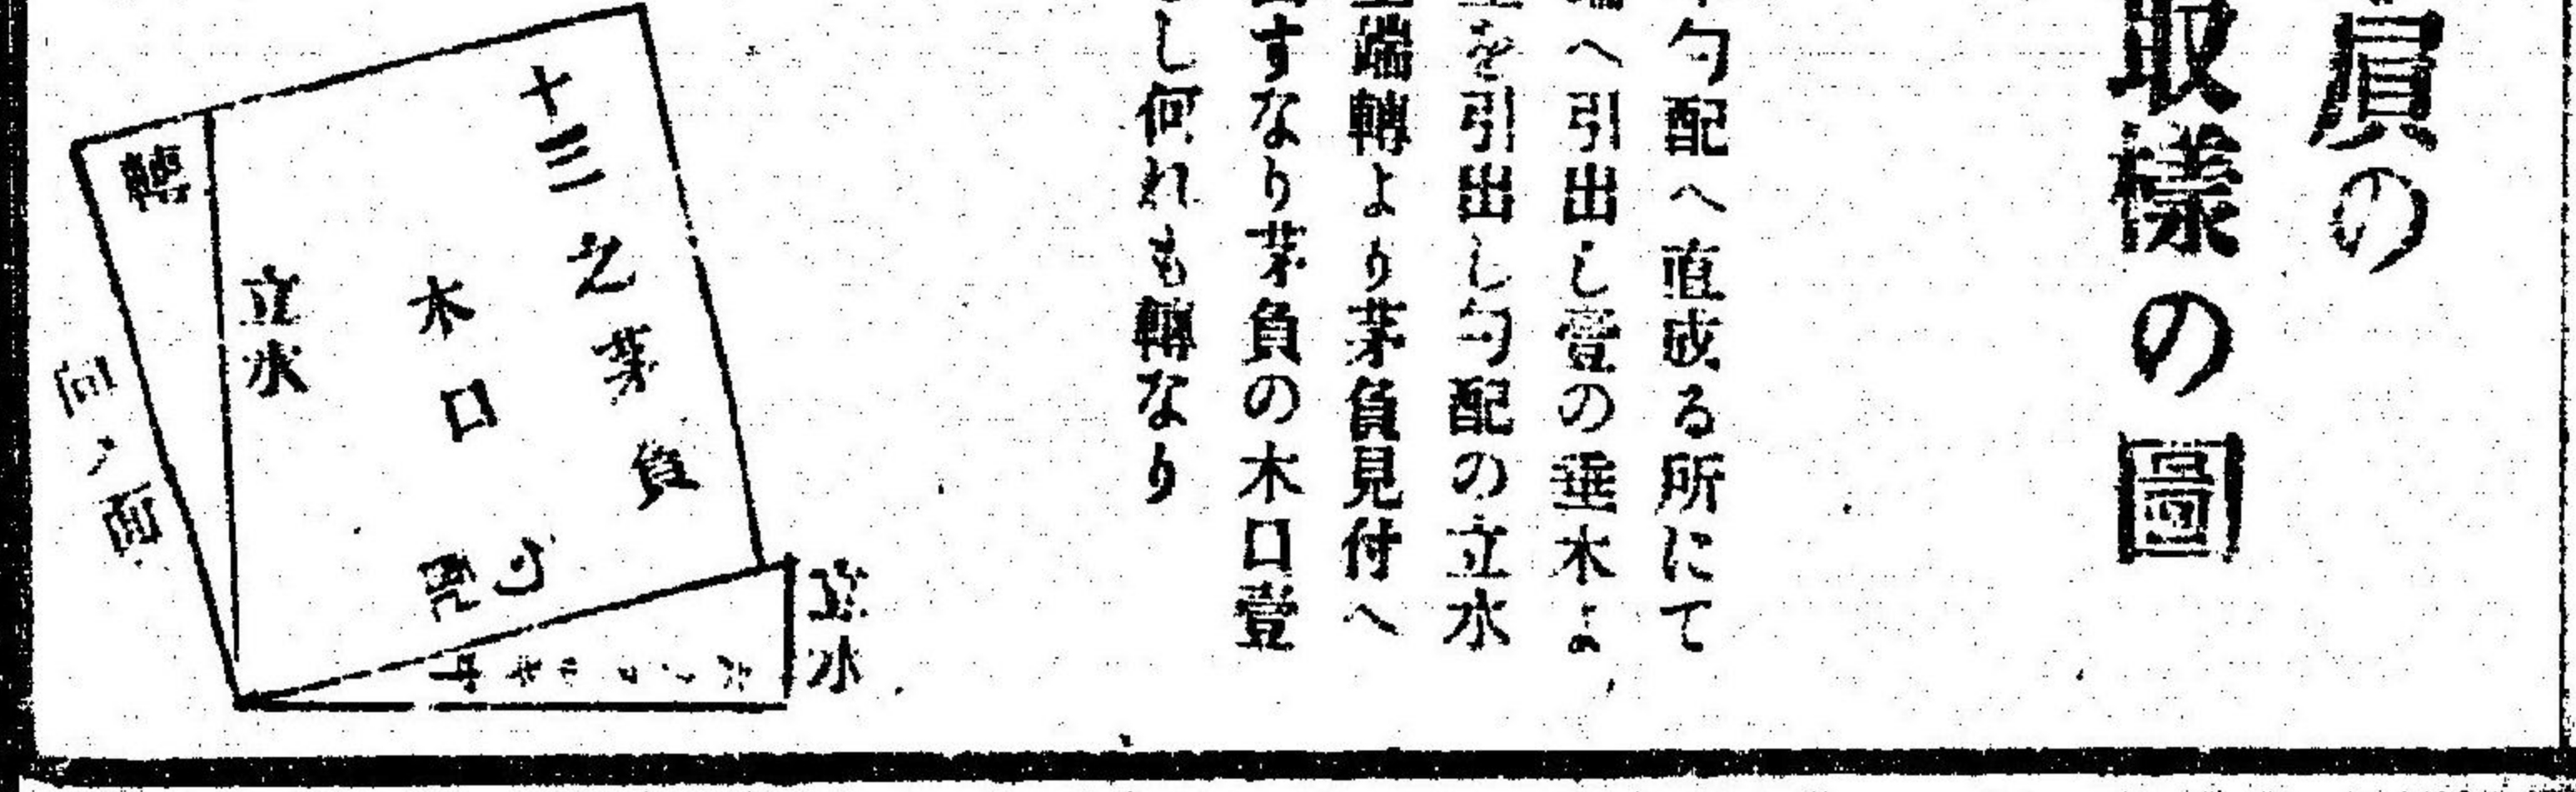 負の
取様の圖
勾配へ直成る所にて
へ引出し壹の垂木よ
を引出し勾配の立水
端轉より茅負見付へ
すなり茅負の木口壹
し何れも轉なり
十三之茅負
木口
立水
轉
向ノ面
立水